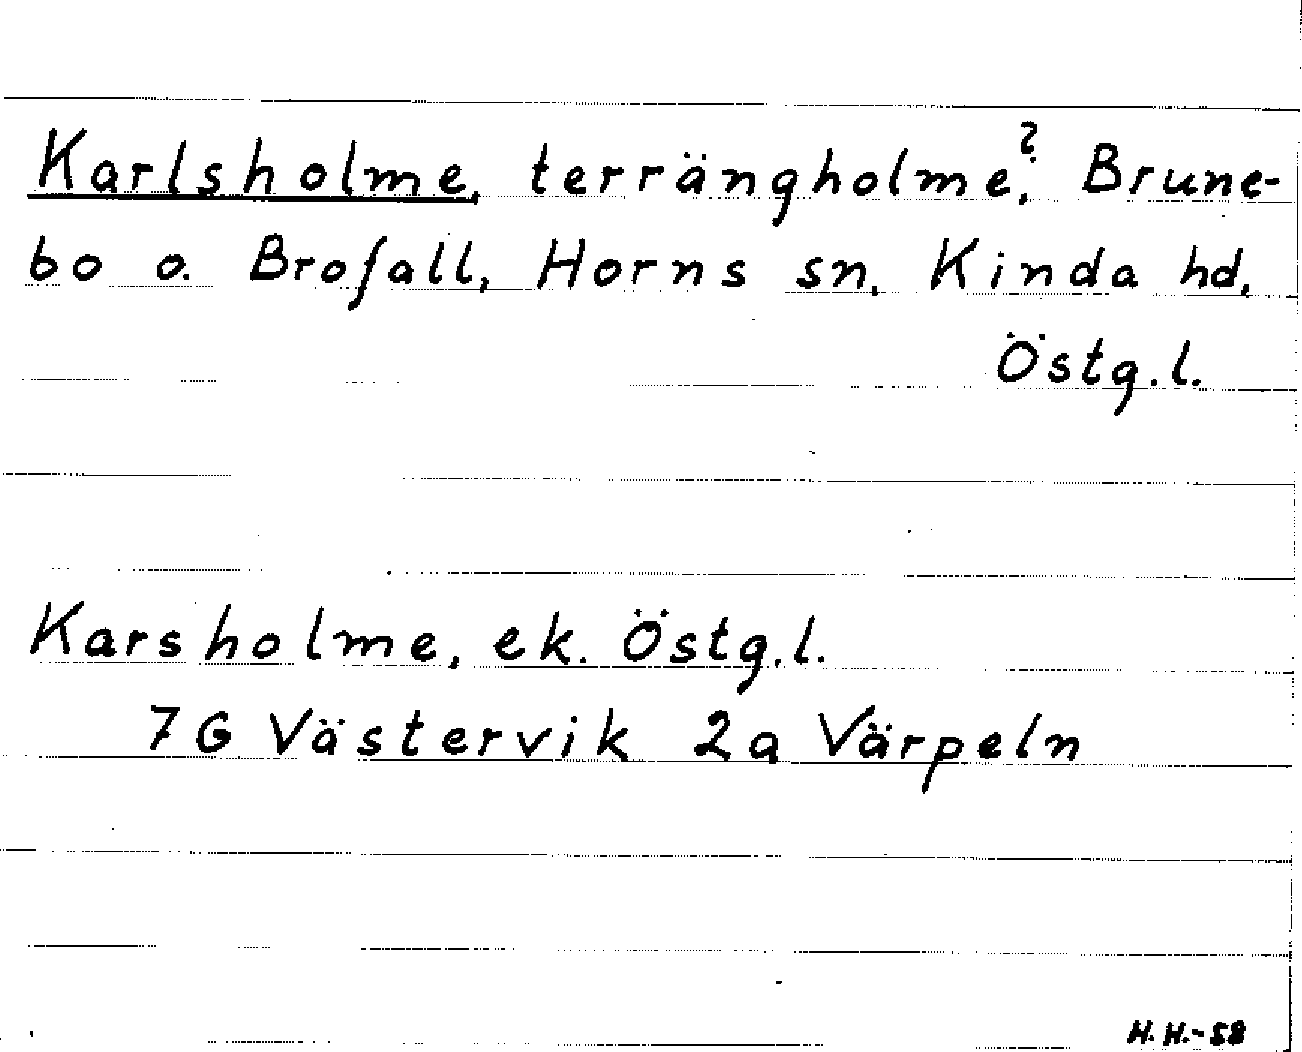 Karlsholme, terrängholme?, Brune-
bo o. Brofall, Horns sn, Kinda hd,
Östg.l.
Karsholme, ek. Östg.l.
7G Västervik 2a Värpeln
H.H.-58